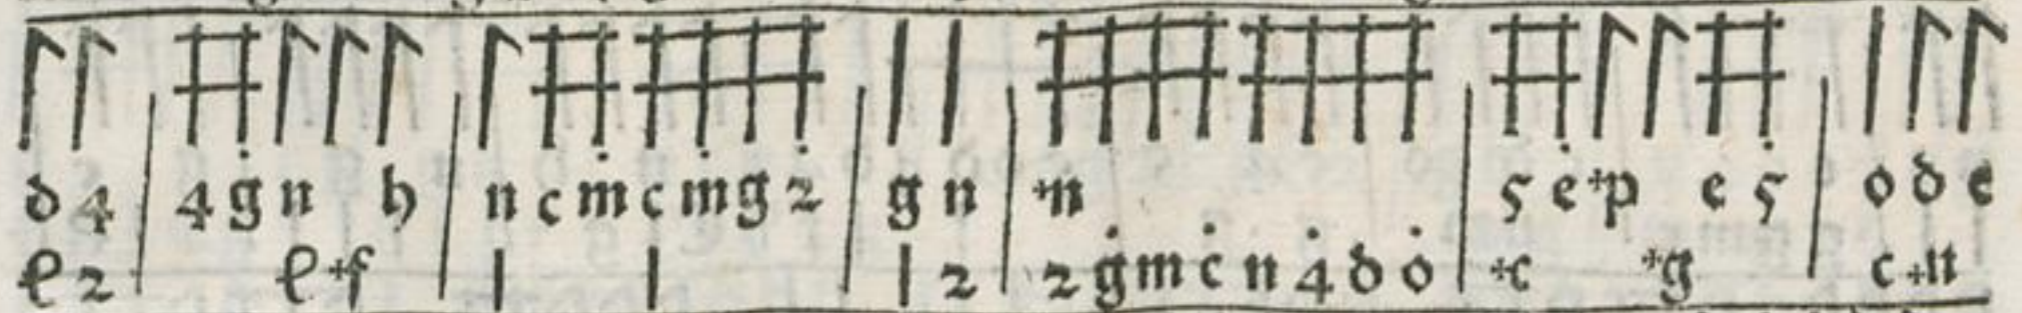 d 4 | 4 g n h | n c m c m g 2 | g n | +n 5 e +p e 5 | o d e
l 2 | l +f | 1 1 | 1 2 | 2 g m c n 4 d o | +c +g | c +n